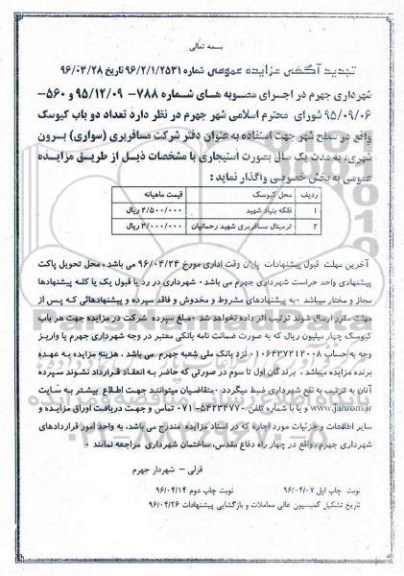 بسمه تعالی
تجدید آگهی مزایده عمومی شماره ۹۶/۲/۱/۲۵۳۱ تاریخ ۹۶/۰۳/۲۸
شهرداری جهرم در اجرای مصوبه های شماره ۷۸۸- ۹۵/۱۲/۰۹ و ۵۶۰-
۹۵/۰۹/۰۶ شورای محترم اسلامی شهر جهرم در نظر دارد تعداد دو باب کیوسک
واقع در سطح شهر جهت استفاده به عنوان دفتر شرکت مسافربری (سواری) برون
شهری، به مدت یک سال بصورت استیجاری با مشخصات ذیل از طریق مزایده
عمومی به بخش خصوصی واگذار نماید :
ردیف محل کیوسک قیمت ماهیانه
۱ فلکه بنیاد شهید ۲/۵۰۰/۰۰۰ ریال
۲ ترمینال مسافربری شهید رحمانیان ۳/۰۰۰/۰۰۰ ریال
آخرین مهلت قبول پیشنهادات پایان وقت اداری مورخ ۹۶/۰۴/۲۴ می باشد . محل تحویل پاکت
پیشنهادی واحد حراست شهرداری جهرم می باشد . شهرداری در رد یا قبول یک یا کلیه پیشنهادها
مجاز و مختار میباشد . به پیشنهادهای مشروط و مخدوش و فاقد سپرده و پیشنهادهائی که پس از
مهلت مقرر ارسال شوند ترتیب اثر داده نخواهد شد . مبلغ سپرده شرکت در مزایده جهت هر باب
کیوسک چهار میلیون ریال که به صورت ضمانت نامه بانکی معتبر در وجه شهرداری جهرم یا واریز
وجه به حساب ۱۰۶۴۳۷۲۱۲۰۰۸ نزد بانک ملی شعبه جهرم می باشد . هزینه مزایده به عهده
برنده مزایده میباشد . برندگان اول تا سوم در صورتی که حاضر به انعقاد قرارداد نشوند سپرده
آنان به ترتیب به نفع شهرداری ضبط میگردد . متقاضیان میتوانند جهت اطلاع بیشتر به سایت
www.jahrom.ir و یا با شماره تلفن ۵۴۲۳۴۷۷۰-۰۷۱ تماس و جهت دریافت اوراق مزایده و
سایر اطلاعات و جزئیات مورد اجاره که در اسناد مزایده مندرج می باشد، به واحد امور قراردادهای
شهرداری جهرم، واقع در چهار راه دفاع مقدس، ساختمان شهرداری مراجعه نمایند .
قزلی – شهردار جهرم
نوبت چاپ اول ۹۶/۰۴/۰۷ نوبت چاپ دوم ۹۶/۰۴/۱۴
تاریخ تشکیل کمیسیون عالی معاملات و بازگشایی پیشنهادات ۹۶/۰۴/۲۶